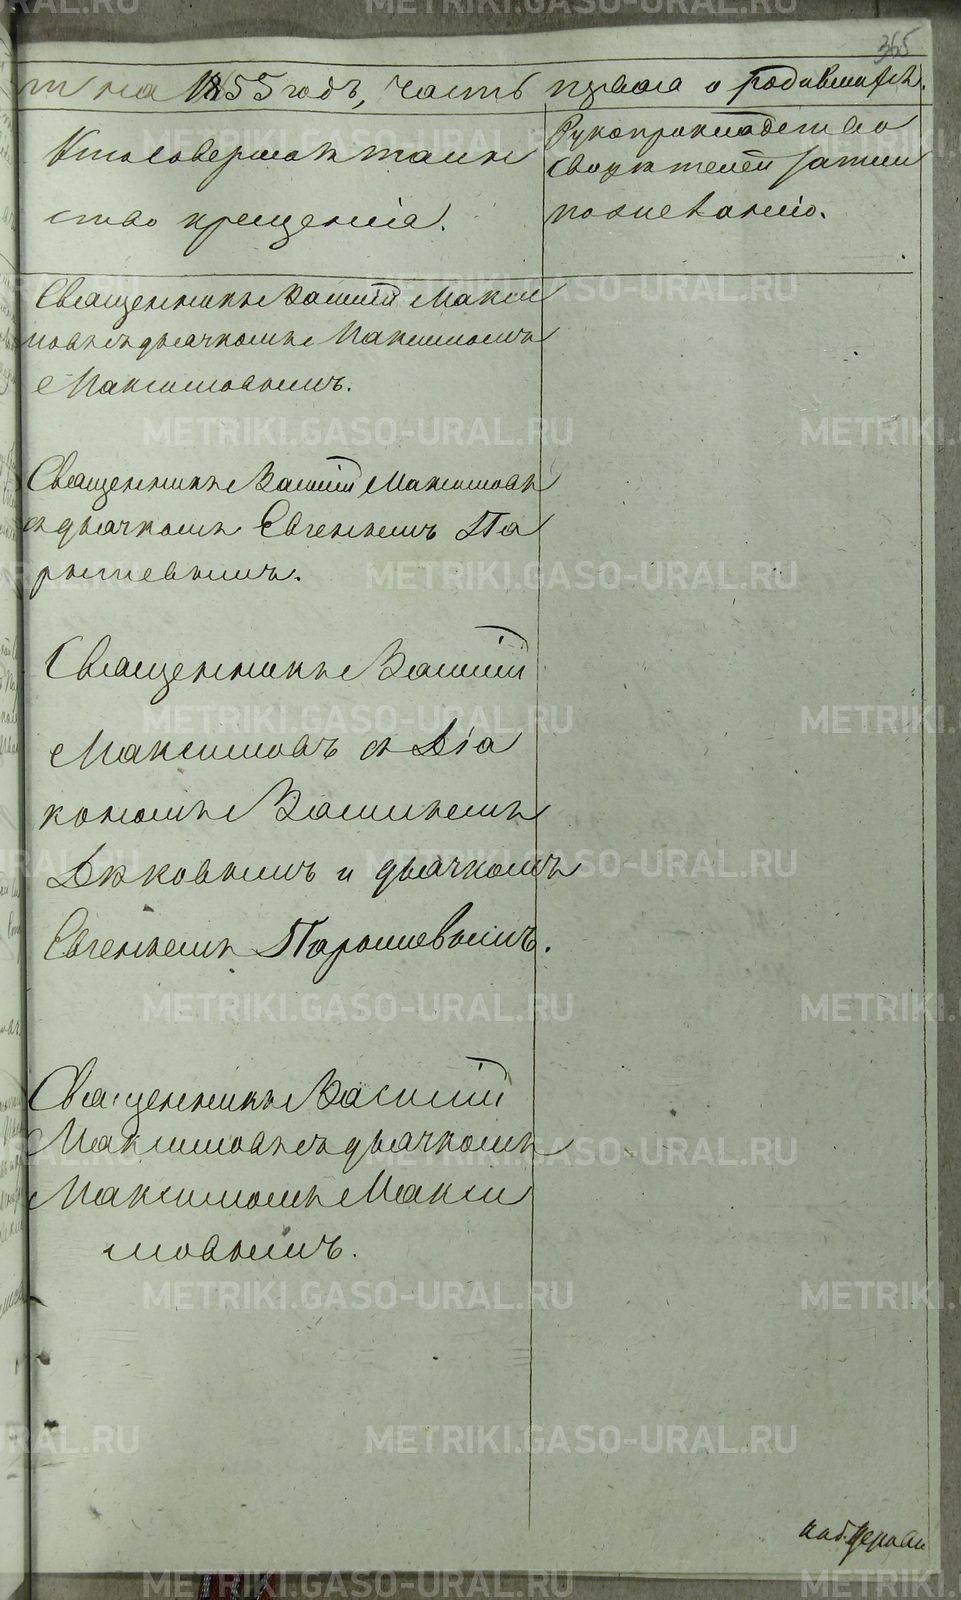 365
на 1855 годъ, часть первая о родившихся.
Кто совершал таин
ство крещенія.
Рукоприкладство
свидѣтелей записи
по желанію.
Священникъ Василій Макси
мовъ съ дьячкомъ Максимомъ
Максимовымъ.
Священникъ Василій Максимовъ
съ дьячкомъ Евгеньемъ Па
рышевымъ.
Священникъ Василій
Максимовъ съ Діа
кономъ Васильемъ
Дѣковымъ и дьячкомъ
Евгеньемъ Парышевымъ.
Священникъ Василій
Максимовъ съ дьячкомъ
Максимомъ Макси
мовымъ.
METRIKI.GASO-URAL.RU